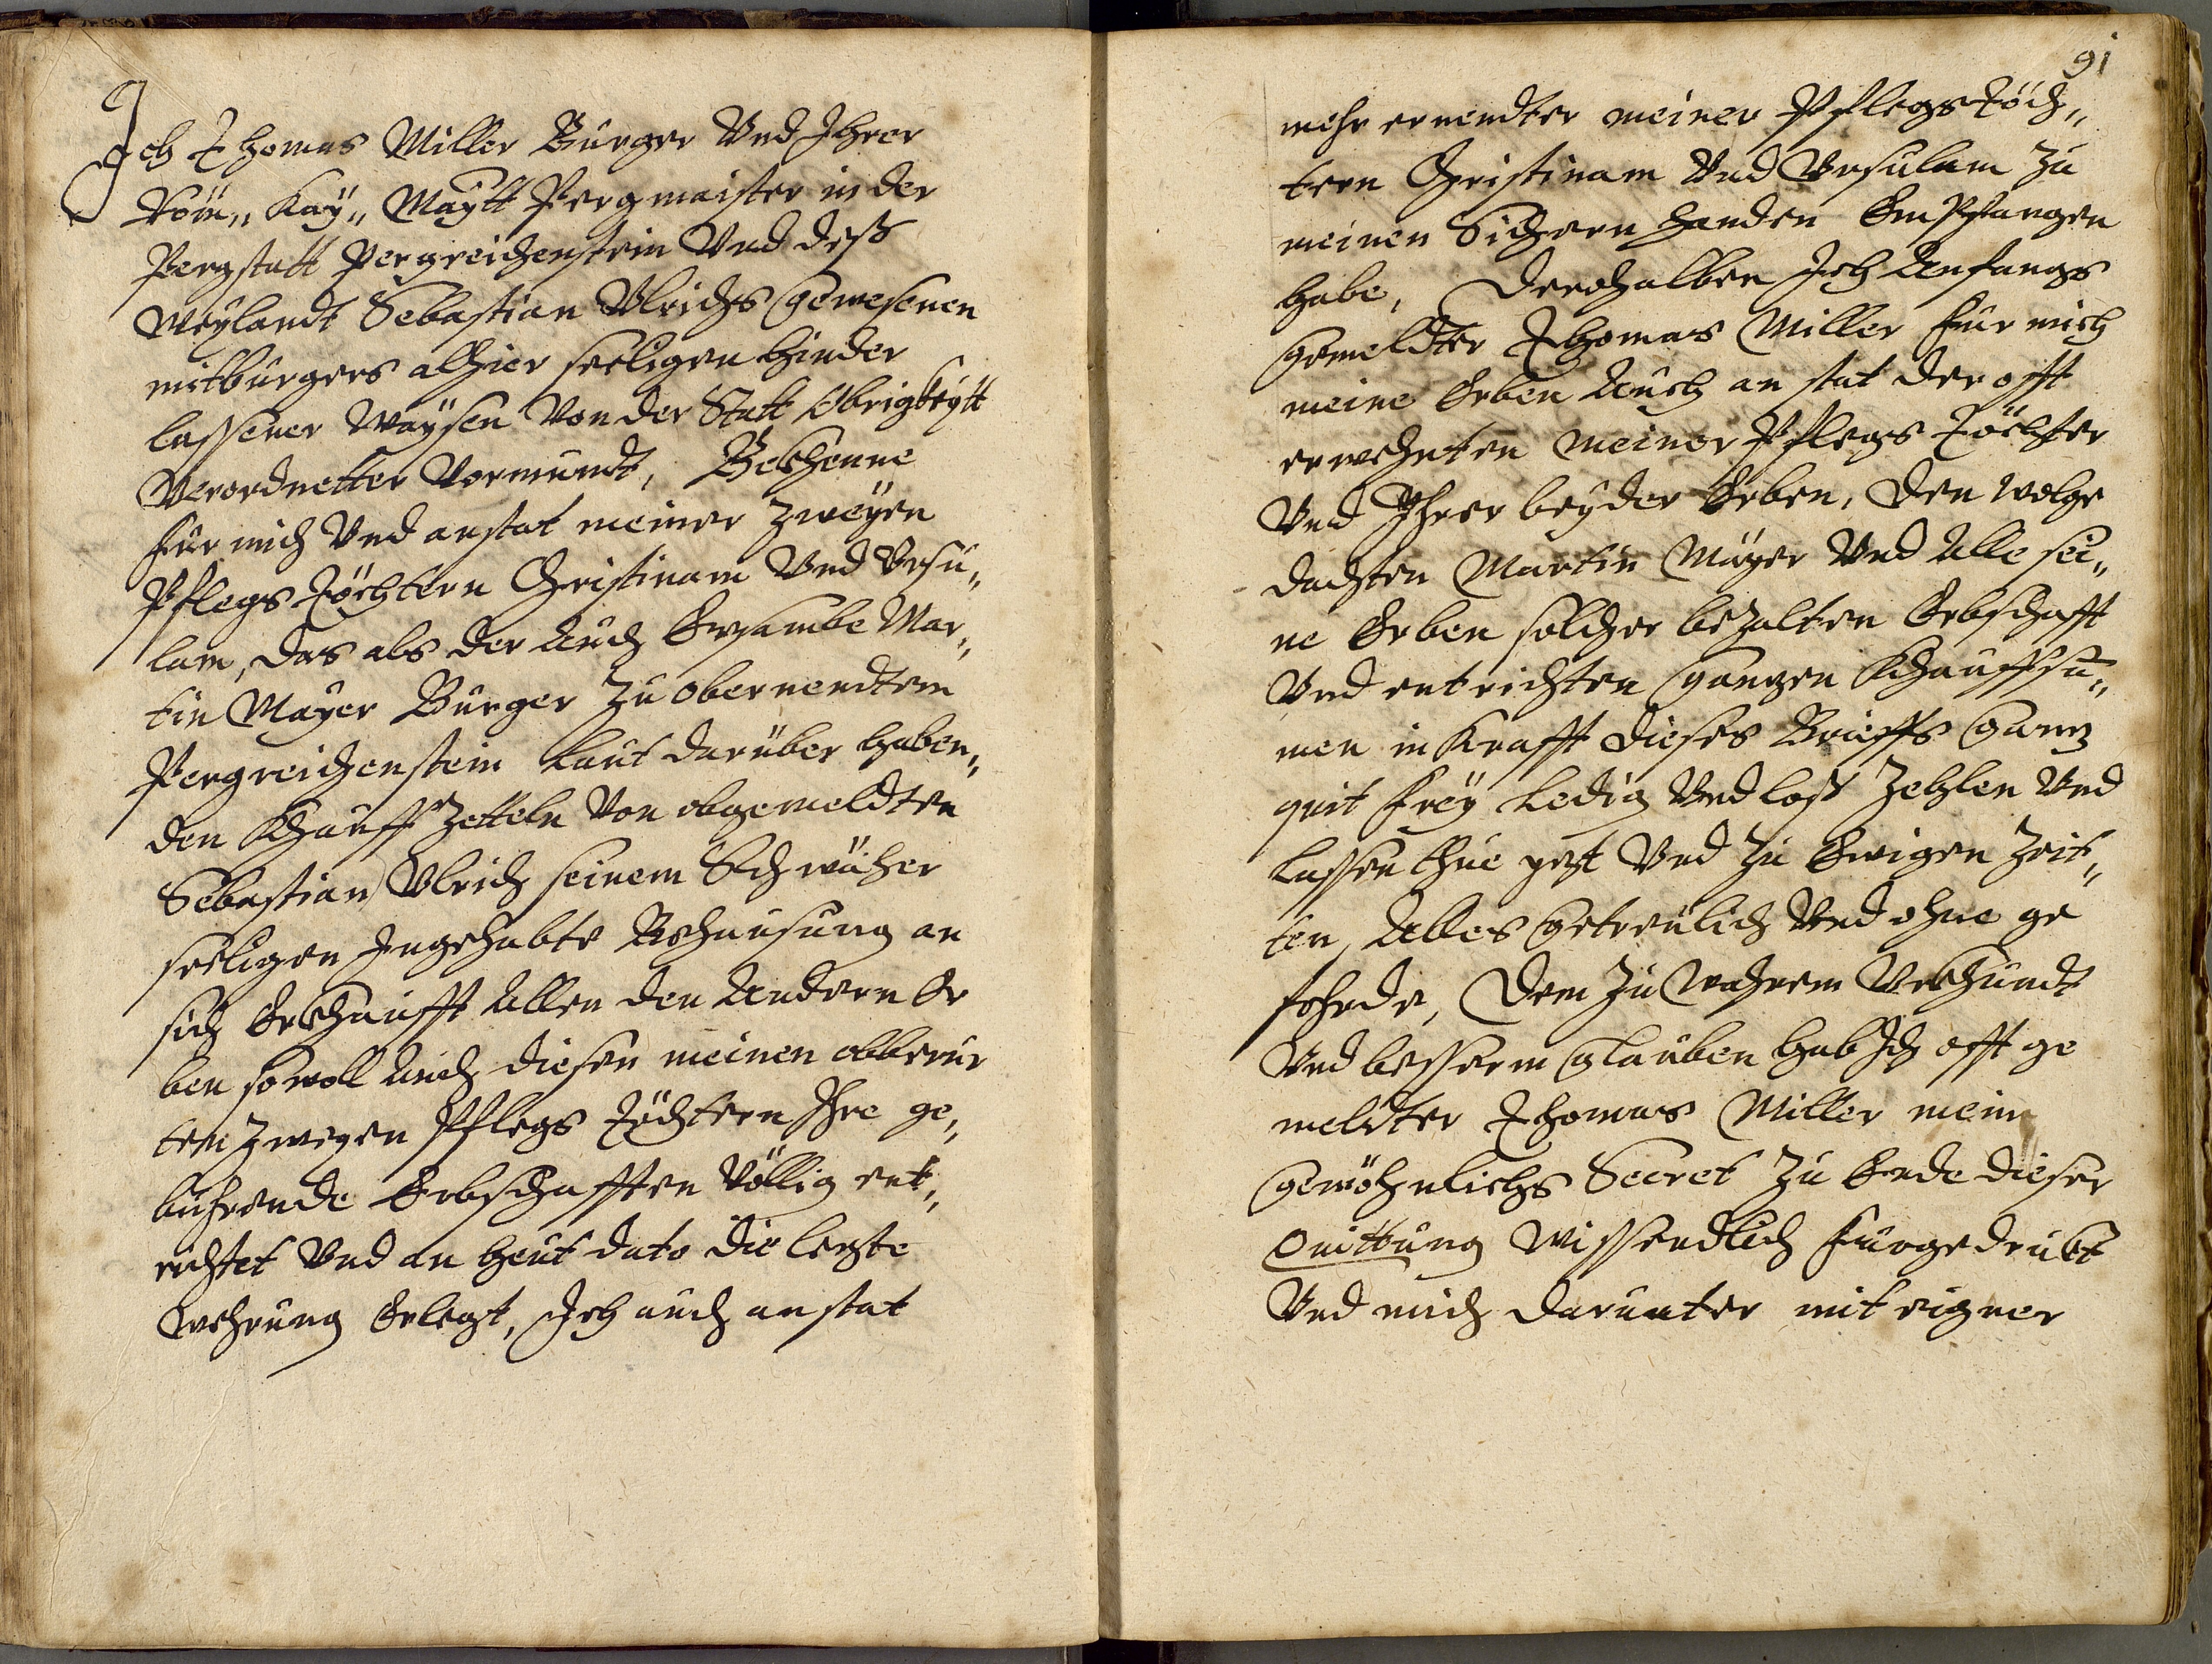 Ich Thomas Miller Burger Vnd Ihrer
Röm„ Kaÿ„ Maÿtt Pergmaister in der
Pergstatt Pergreichenstein Vnd deß
Weÿlandt Sebastian Vlrichs gewesenen
mitburgers alhier seeligen hinder
lassener Waÿsen Von der Statt Obrigkeÿtt
Verordnetter Vormundt, Bekhenne
für mich Vnd anstat meiner Zweÿen
Pflegs Töchtern Christinam Vnd Vrsu„
lam, das als der Auch Ersambe Mar„
tin Mayer Burger Zu obernendtem
Pergreichenstein Laut darüber haben„
den Khauff Zetteln Von obgemeldten
Sebastian Vlrich seinem Schwächer
seeligen Ingehabte Behausung an
sich Erkhaufft Allen den Andern Er
ben sowoll Auch diesen meinen obberür
ten Zweyen Pflegs Töchtern Ihre ge„
bührende Erbschafften Völlig ent„
richtet Vnd an heut dato die leczte
Wehrung Erlegt, Ich auch anstat
91
mehr ernendter meiner Pflegs Töch„
tern Christinam Vnd Vrsulam Zu
meinen Sichern handen Empfangen
habe, Derohalben Ich Anfangs
gemeldter Thomas Miller für mich
meine Erben Auch an stat der offt
erwehnten meiner Pflegs Töchter
Vnd Ihrer beÿder Erben, den wolge
dachten Martin Mayer Vnd Alle sei„
ne Erben solcher bezalten Erbschafft
Vnd entrichten ganczen Khauffsu„
men in Krafft dieses Brieffs Gancz
quit freÿ Ledig Vnd loß Zehlen Vnd
Lassen thue yezt Vnd Zu Ewigen Zeit„
ten, Alles getreulich Vnd ohne ge
fehrde, Dem Zu Wahrem Vrkhundt
Vnd besserm glauben hab Ich offt ge
meldter Thomas Miller mein
gewöhnlichs Secret Zu Ende dieser
Quittung Wissendtlich fürgedrukt
Vnd mich darunter mit eigner